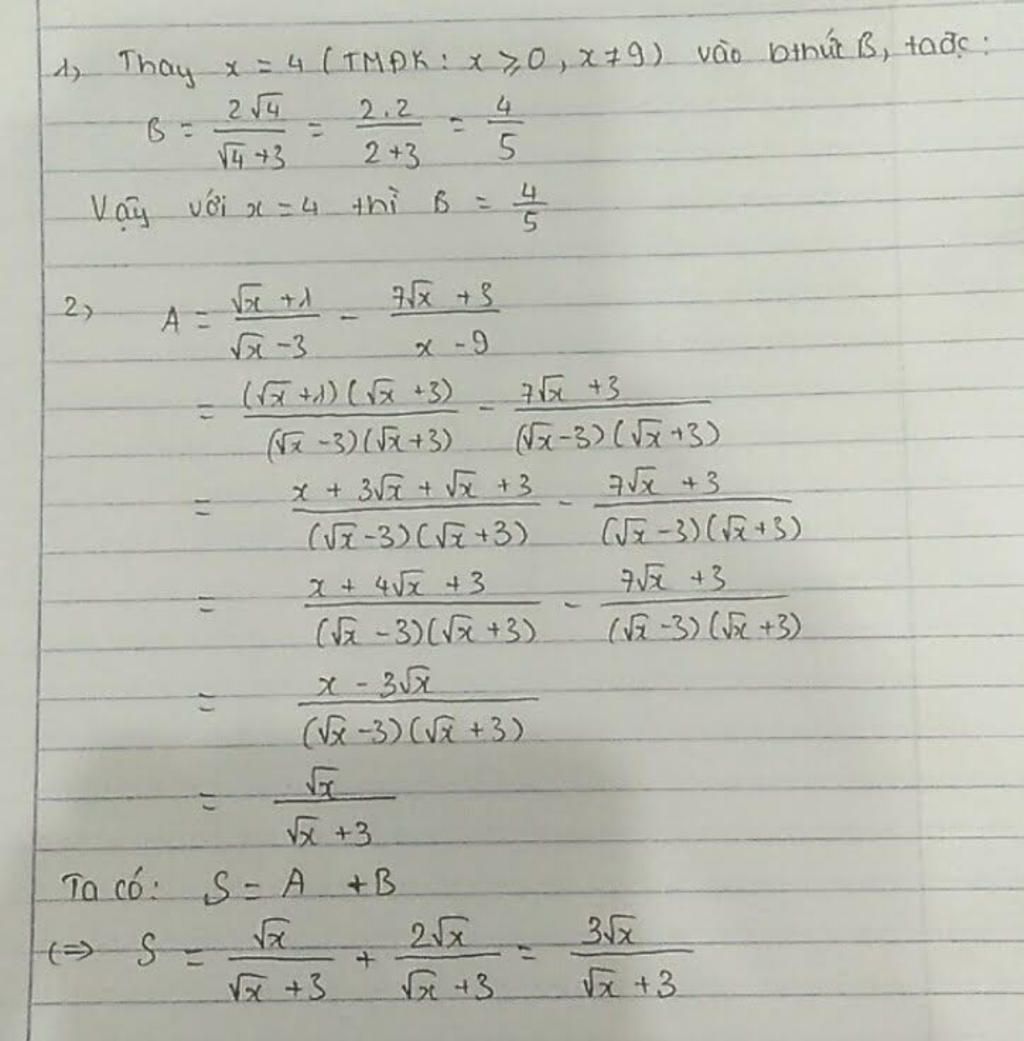 1, Thay x = 4 (TMĐK: x ⩾ 0, x ≠ 9) vào bthức B, tađc:
B = \frac{2\sqrt{4}}{\sqrt{4}+3} = \frac{2.2}{2+3} = \frac{4}{5}
Vậy với x = 4 thì B = \frac{4}{5}
2, A = \frac{\sqrt{x}+1}{\sqrt{x}-3} - \frac{7\sqrt{x}+3}{x-9}
= \frac{(\sqrt{x}+1)(\sqrt{x}+3)}{(\sqrt{x}-3)(\sqrt{x}+3)} - \frac{7\sqrt{x}+3}{(\sqrt{x}-3)(\sqrt{x}+3)}
= \frac{x+3\sqrt{x}+\sqrt{x}+3}{(\sqrt{x}-3)(\sqrt{x}+3)} - \frac{7\sqrt{x}+3}{(\sqrt{x}-3)(\sqrt{x}+3)}
= \frac{x+4\sqrt{x}+3}{(\sqrt{x}-3)(\sqrt{x}+3)} - \frac{7\sqrt{x}+3}{(\sqrt{x}-3)(\sqrt{x}+3)}
= \frac{x-3\sqrt{x}}{(\sqrt{x}-3)(\sqrt{x}+3)}
= \frac{\sqrt{x}}{\sqrt{x}+3}
Ta có: S = A + B
(=> S = \frac{\sqrt{x}}{\sqrt{x}+3} + \frac{2\sqrt{x}}{\sqrt{x}+3} = \frac{3\sqrt{x}}{\sqrt{x}+3}